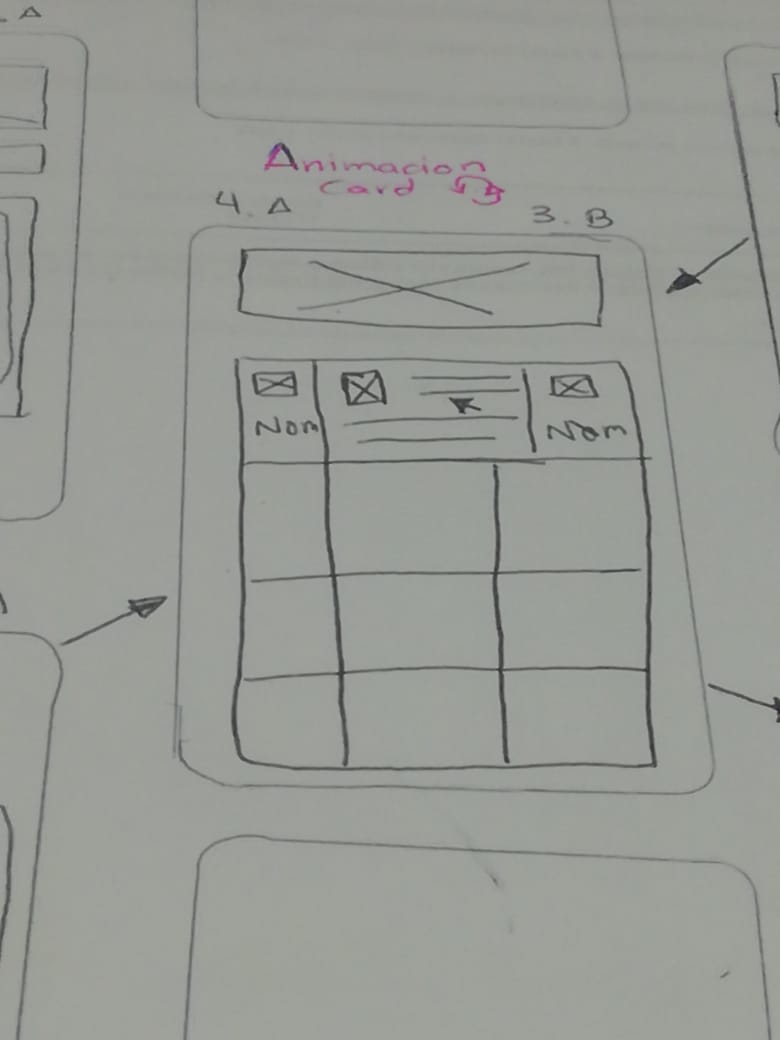 . A
Animacion
Card
4. A
3. B
Nom
Nom